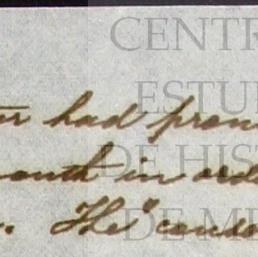 CENTR
ESTU
DE HIST
DE ME
had prom
month in orde
. The "condo